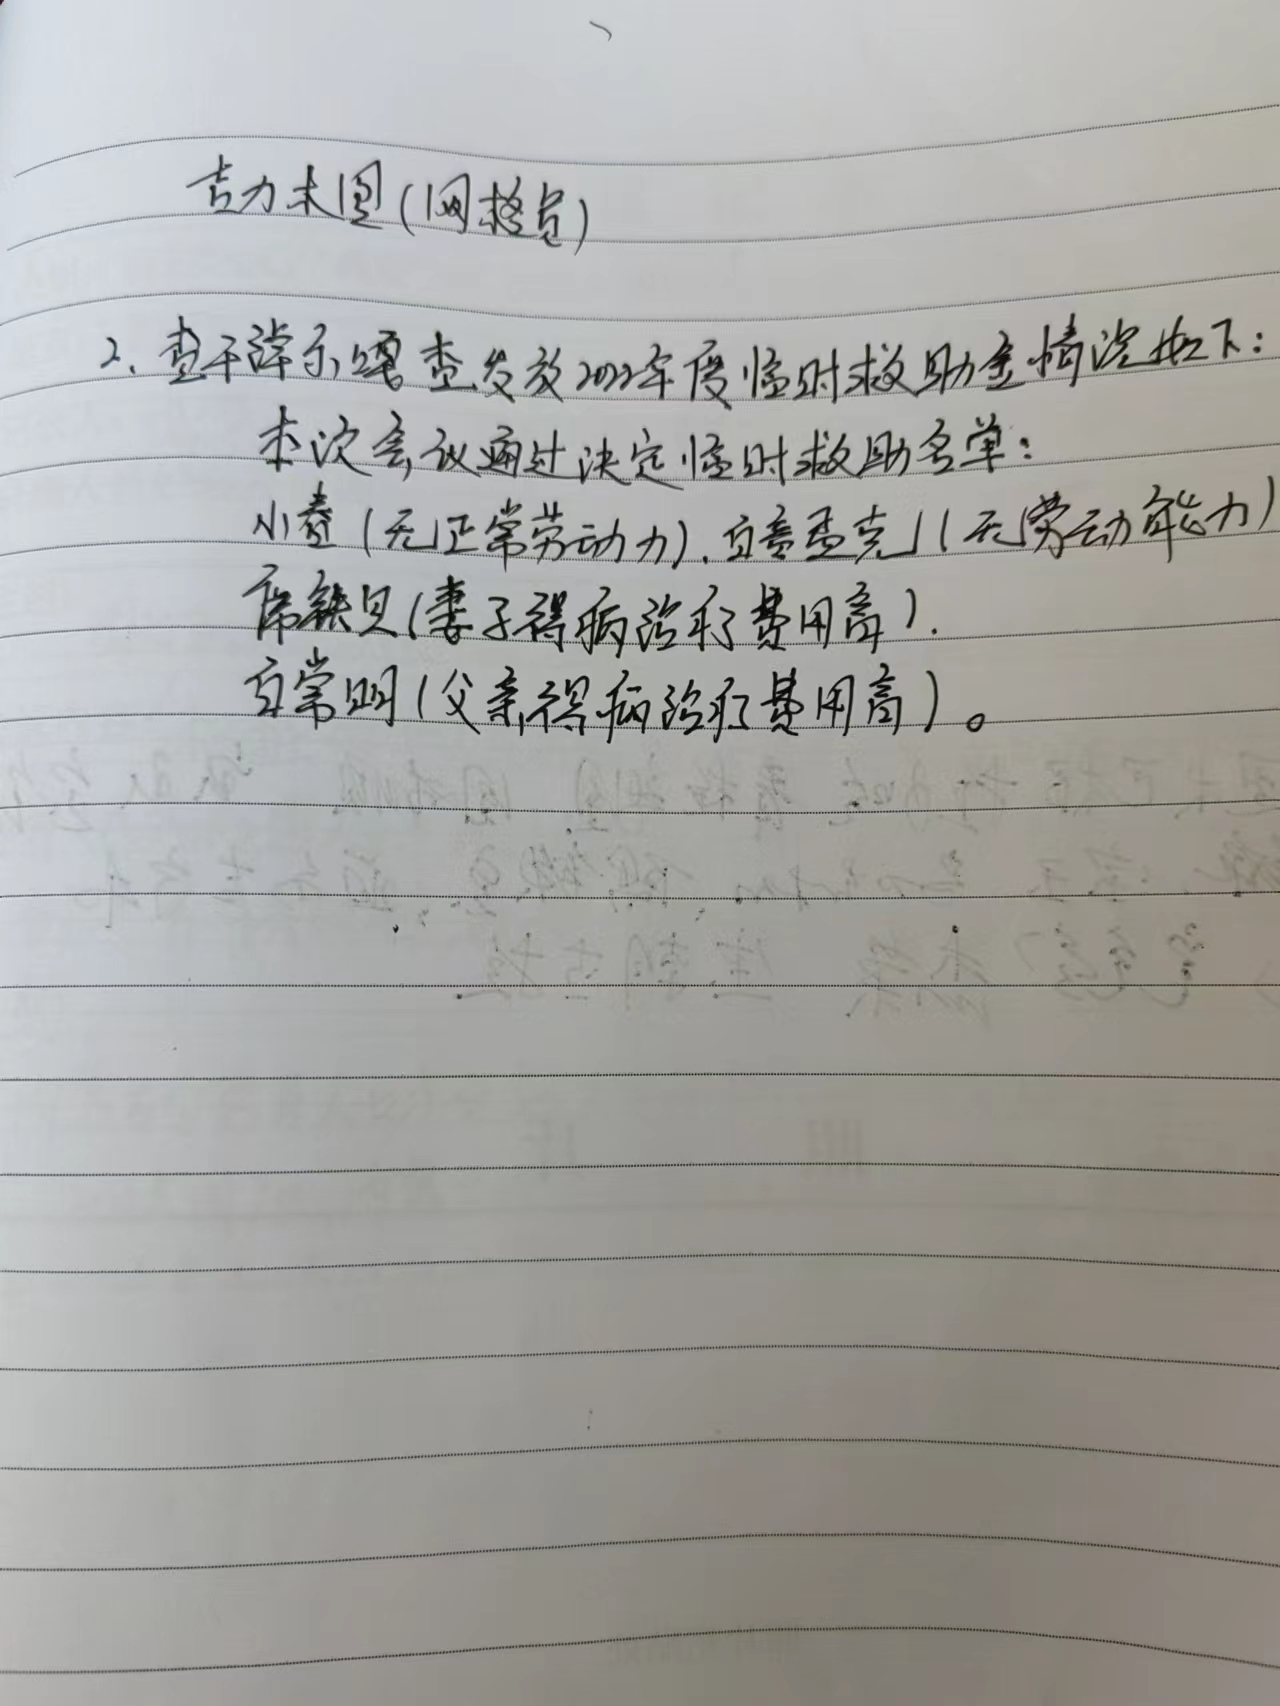 吉力木图(网格员)
2、查干淖尔嘎查发放2022年度临时救助金情况如下:
本次会议通过决定临时救助名单:
小春(无正常劳动力)、白音孟克(无劳动能力)
席铁见(妻子得病治疗费用高).
白常明(父亲得病治疗费用高)。